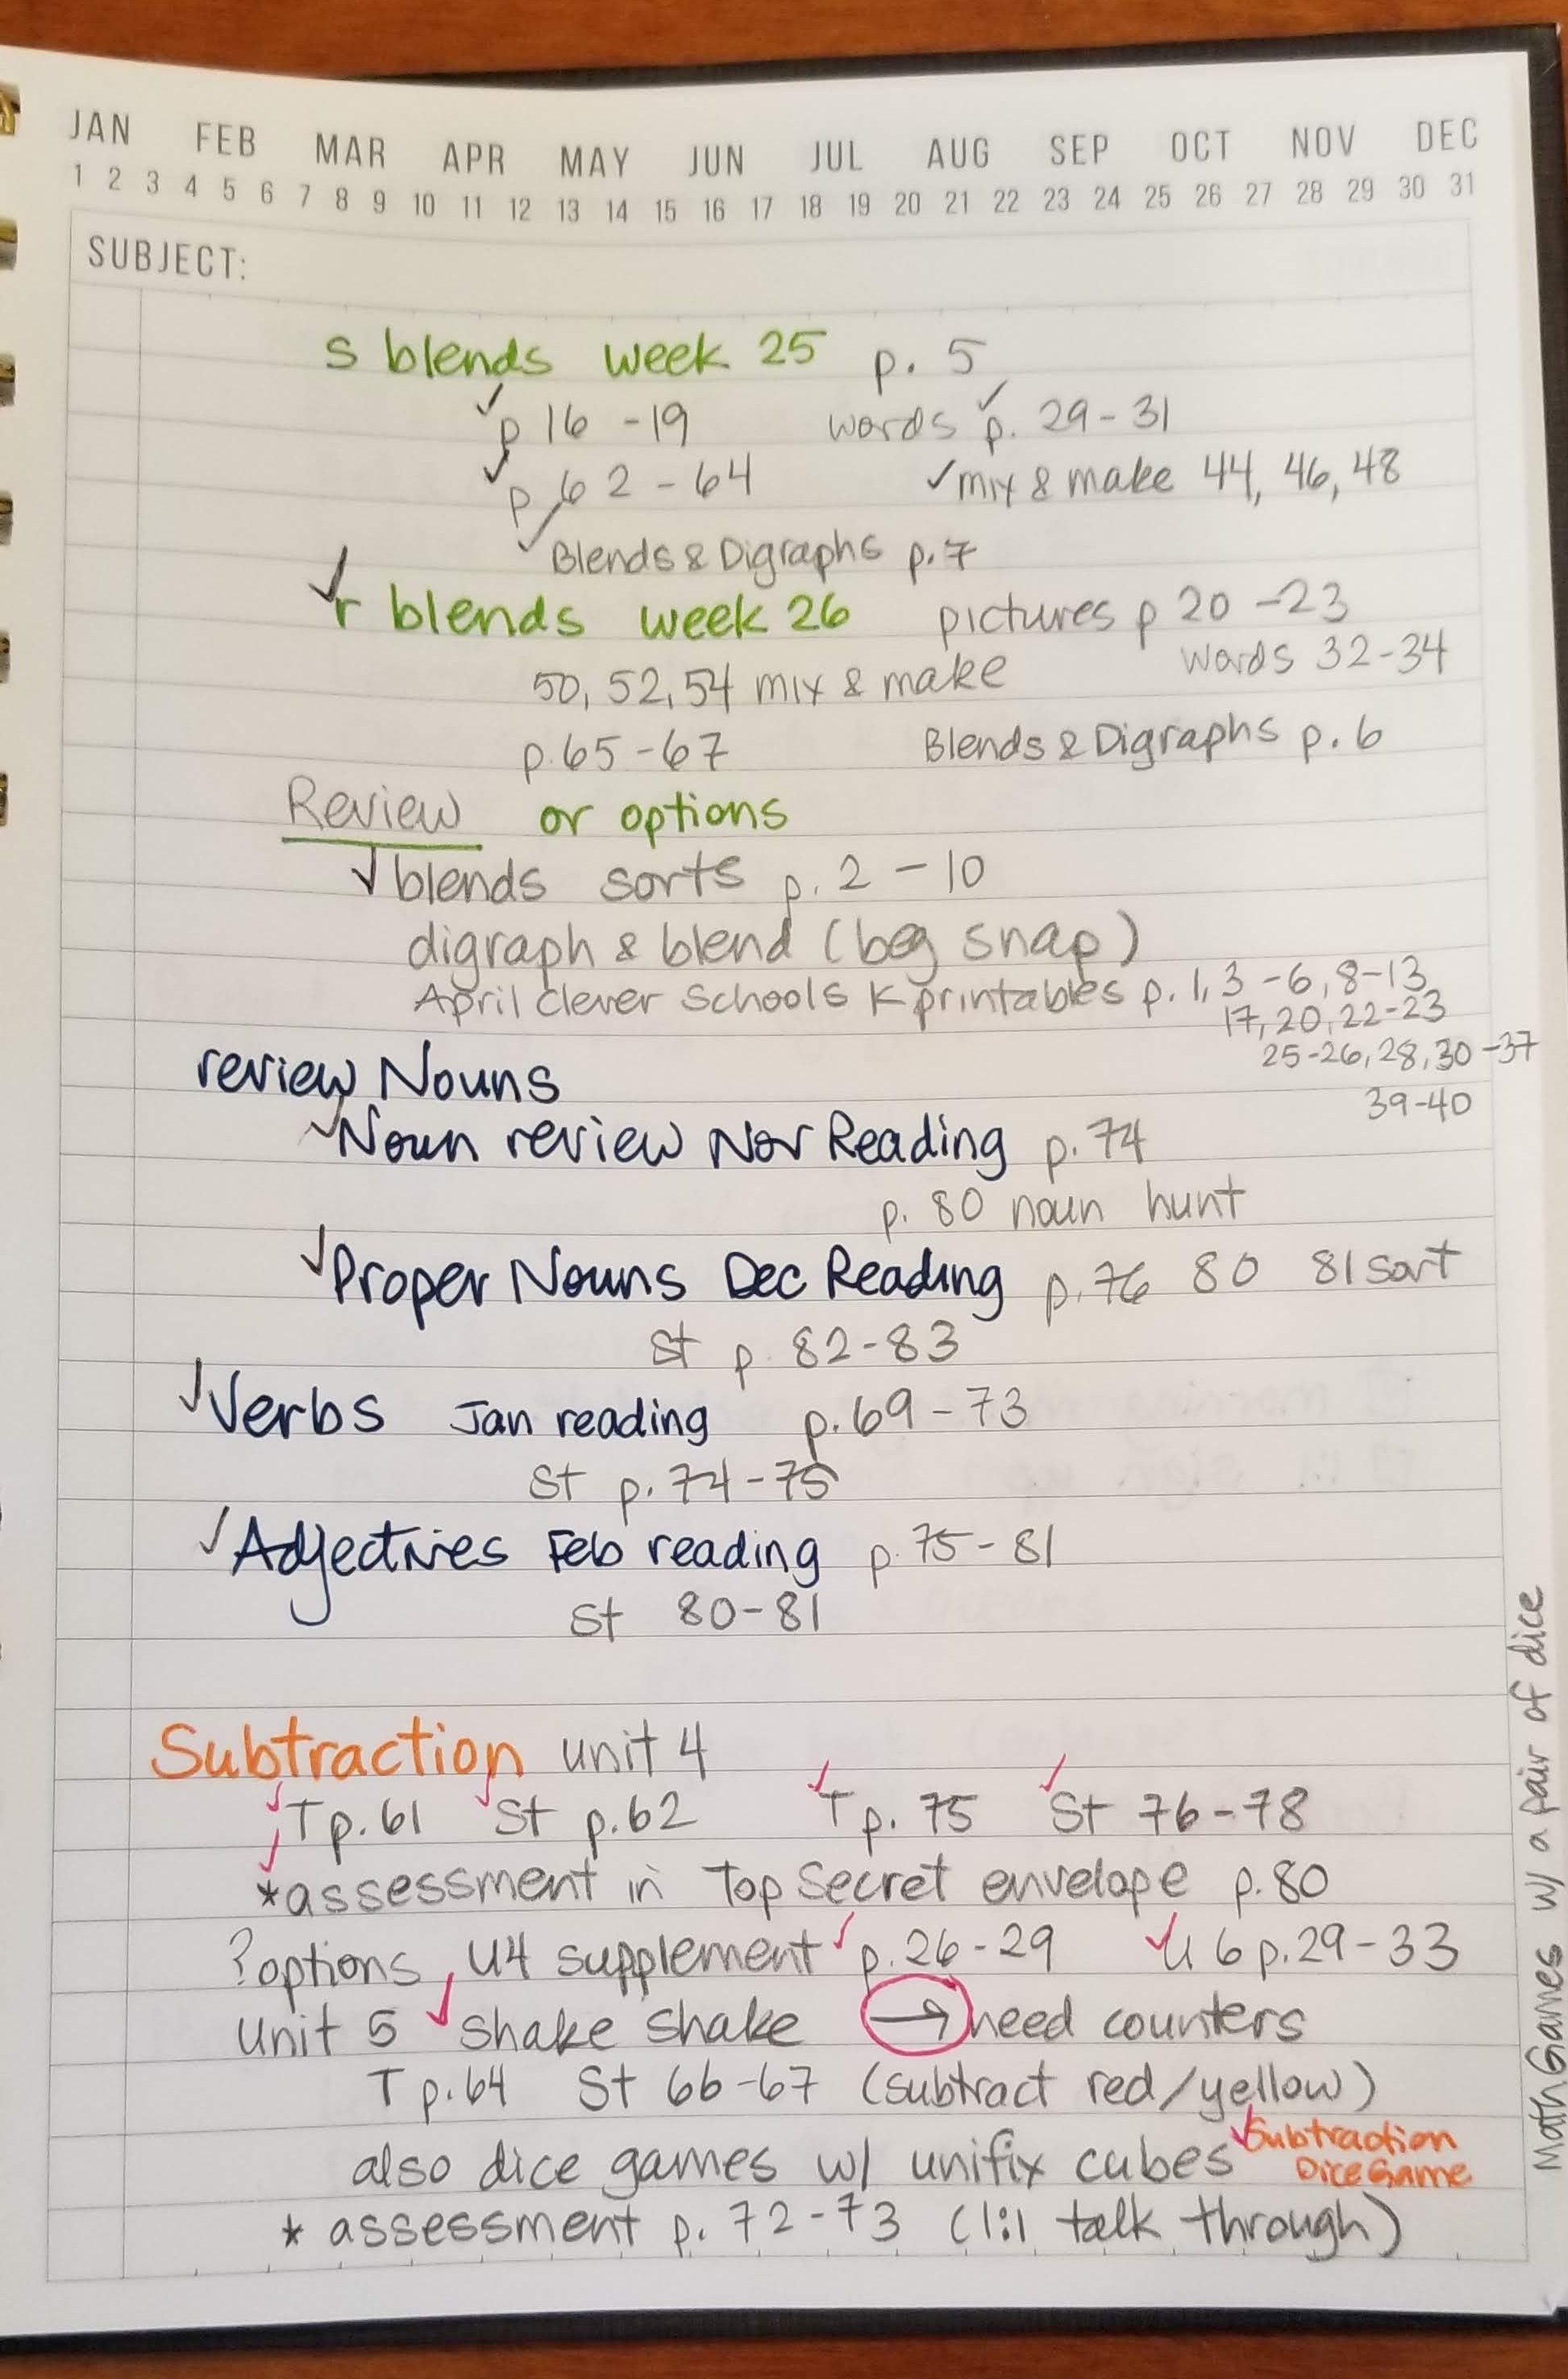 JAN FEB MAR APR MAY JUN JUL AUG SEP OCT NOV DEC
1 2 3 4 5 6 7 8 9 10 11 12 13 14 15 16 17 18 19 20 21 22 23 24 25 26 27 28 29 30 31
SUBJECT:
s blends week 25 p. 5
✓p 16 -19 words ✓p. 29-31
✓p 62-64 ✓mix & make 44, 46, 48
✓Blends & Digraphs p.7
✓r blends week 26 pictures p 20-23
words 32-34
50, 52, 54 mix & make
p.65-67 Blends & Digraphs p.6
Review or options
✓blends sorts p.2-10
digraph & blend (beg snap)
April Clever Schools K printables p.1, 3-6, 8-13
17, 20, 22-23
25-26, 28, 30-37
39-40
review Nouns
✓Noun review Nov Reading p.74
p. 80 noun hunt
✓Proper Nouns Dec Reading p.76 80 81 sort
St p. 82-83
✓Verbs Jan reading p.69-73
St p.74-75
✓Adjectives Feb reading p.75-81
St 80-81
Subtraction unit 4
✓Tp.61 ✓St p.62 ✓Tp.75 ✓St 76-78
✓*assessment in Top Secret envelope p.80
?options, U4 supplement ✓p.26-29 ✓U6 p.29-33
Unit 5 ✓Shake Shake → need counters
Tp.64 St 66-67 (subtract red/yellow)
also dice games w/ unifix cubes ✓Subtraction
Dice Game
* assessment p. 72-73 (1:1 talk through)
Math Games w/ a pair of dice